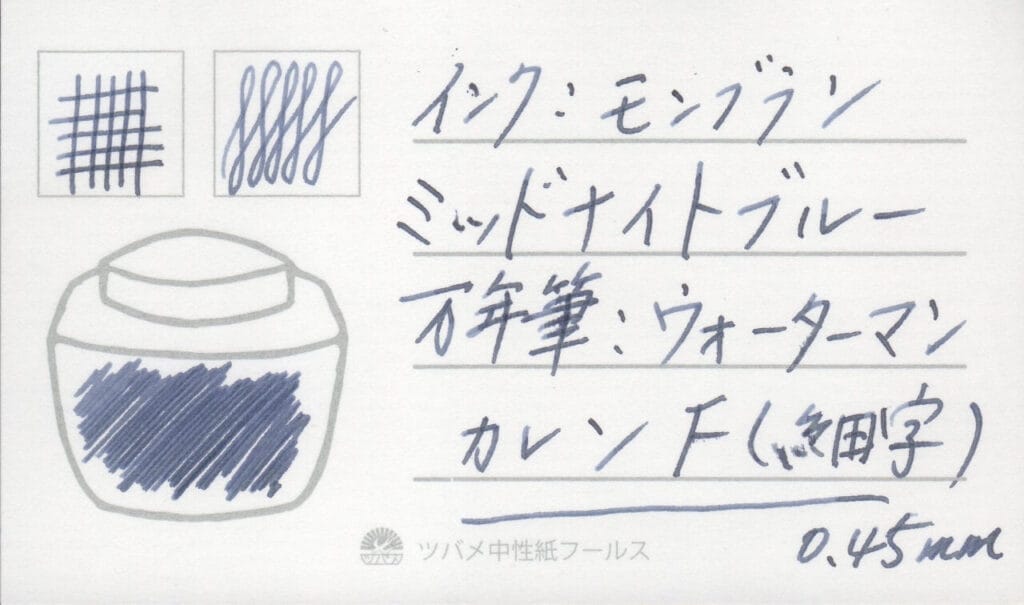 インク：モンブラン
ミッドナイトブルー
万年筆：ウォーターマン
カレン F（細字）
0.45mm
ツバメ中性紙フールス